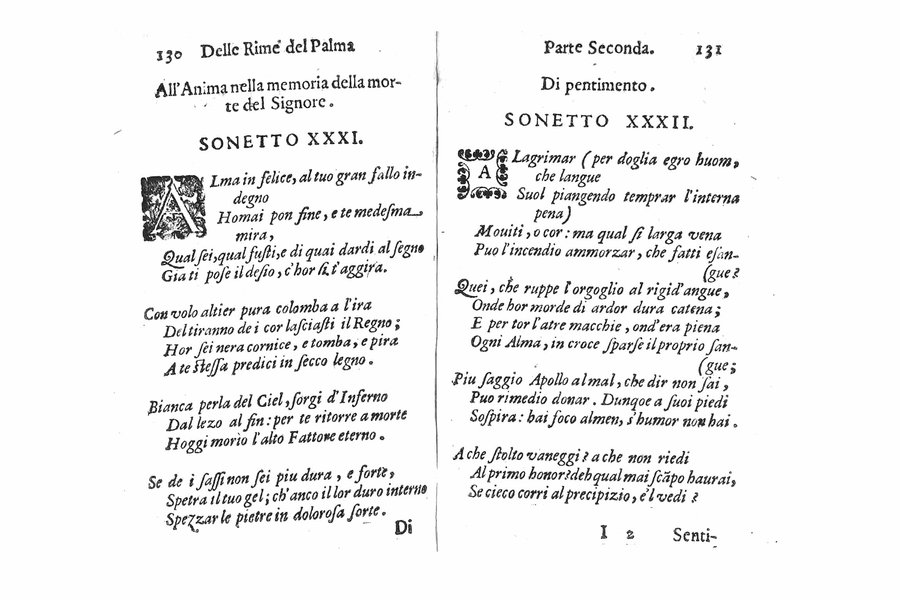 130 Delle Rime del Palma
All'Anima nella memoria della mor-
te del Signore.
SONETTO XXXI.
ALma in felice, al tuo gran fallo in-
degno
Homai pon fine, e te medesma
mira,
Qual sei, qual fusti, e di quai dardi al segno
Gia ti pose il desio, c'hor ſi t'aggira.
Con volo altier pura colomba a l'ira
Del tiranno de i cor lasciasti il Regno;
Hor sei nera cornice, e tomba, e pira
A te stessa predici in secco legno.
Bianca perla del Ciel, sorgi d'Inferno
Dal lezo al fin: per te ritorre a morte
Hoggi morio l'alto Fattore eterno.
Se de i sassi non sei piu dura, e forte,
Spetra il tuo gel; ch'anco il lor duro interno
Spezzar le pietre in dolorosa sorte.
Di
Parte Seconda. 131
Di pentimento.
SONETTO XXXII.
A Lagrimar (per doglia egro huom,
che langue
Suol piangendo temprar l'interna
pena)
Mouiti, o cor: ma qual si larga vena
Puo l'incendio ammorzar, che fatti esan-
(gue?
Quei, che ruppe l'orgoglio al rigid'angue,
Onde hor morde di ardor dura catena;
E per tor l'atre macchie, ond'era piena
Ogni Alma, in croce sparse il proprio san-
(gue;
Piu saggio Apollo al mal, che dir non sai,
Puo rimedio donar. Dunqoe a suoi piedi
Sospira: hai foco almen, s'humor non hai.
A che stolto vaneggi? a che non riedi
Al primo honor? deh qual mai scãpo haurai,
Se cieco corri al precipizio, e'l vedi?
I 2 Senti-